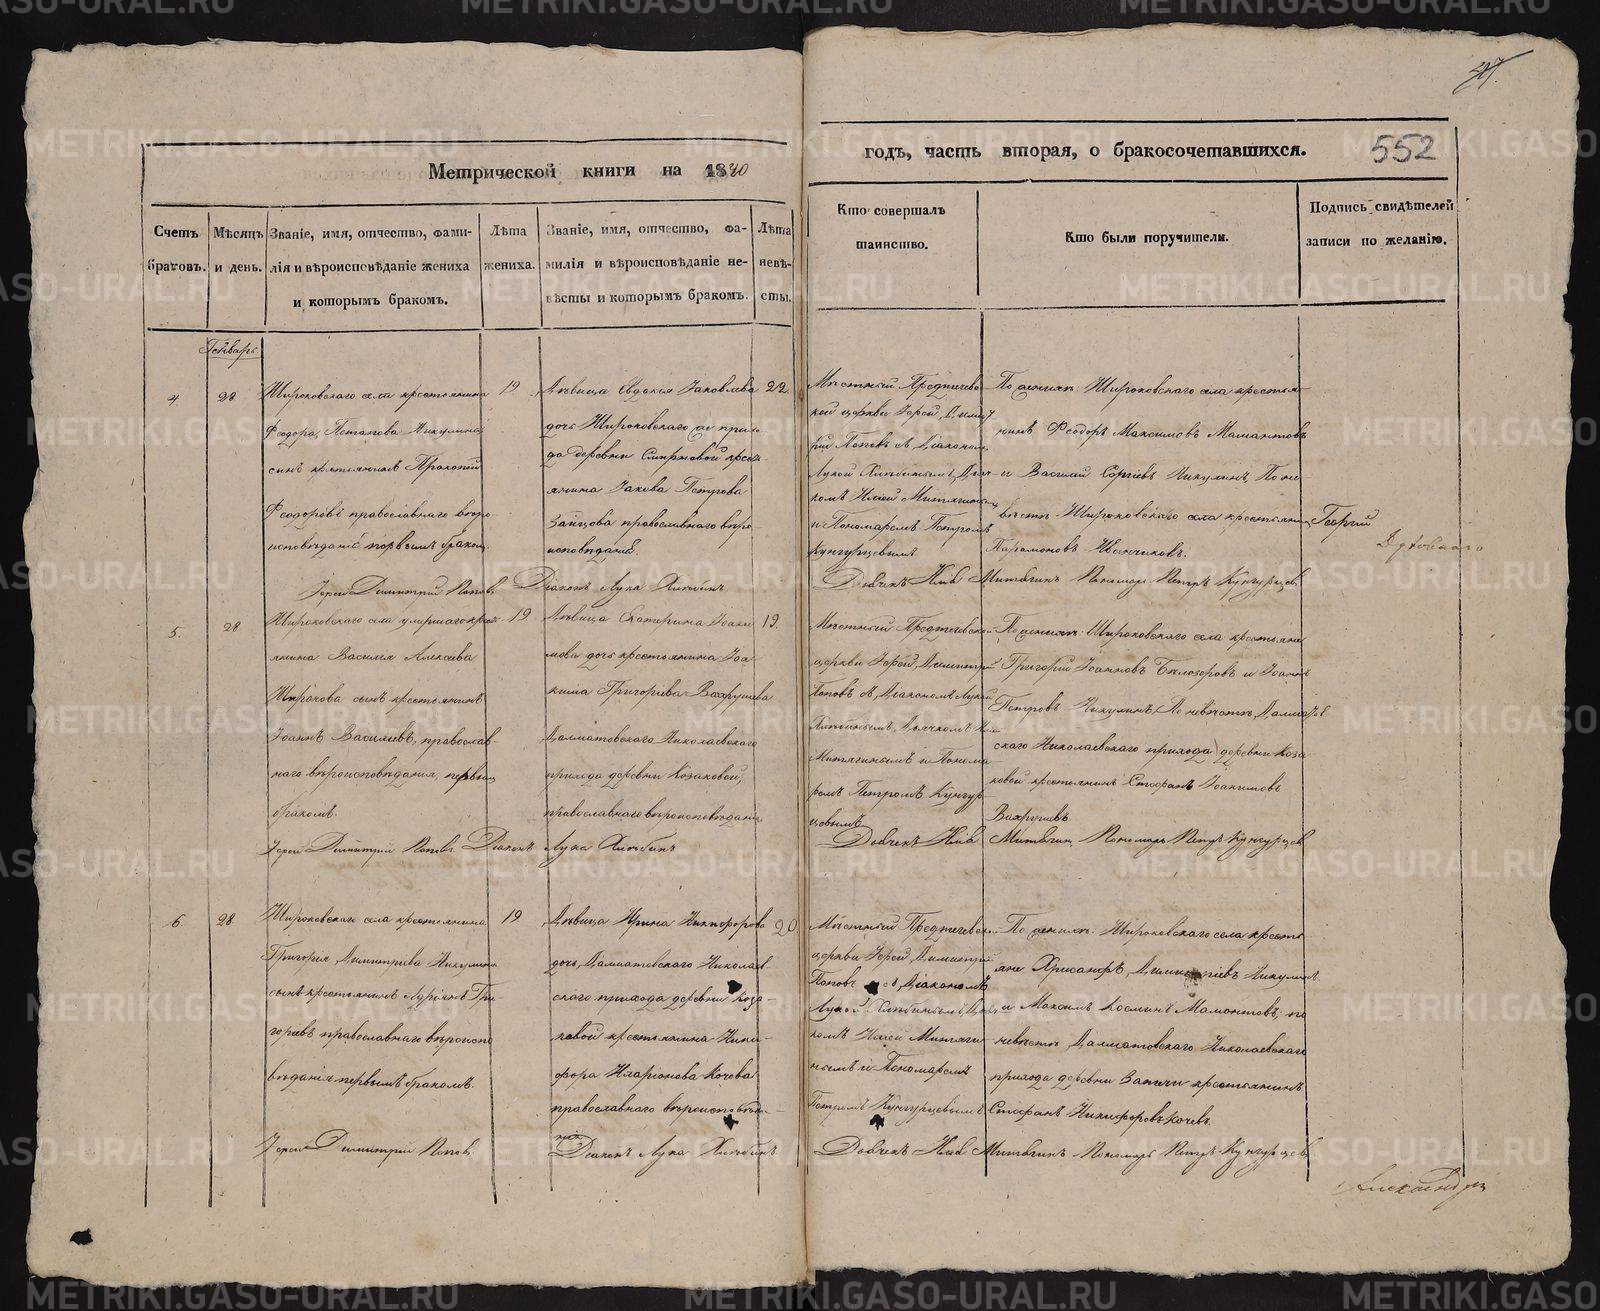 Метрической книги на 1840
годъ, часть вторая, о бракосочетавшихся.
552
Счетъ браковъ.
Мѣсяцъ и день.
Званіе, имя, отчество, фами-
лія и вѣроисповѣданіе жениха
и которымъ бракомъ.
Лѣта
жениха.
Званіе, имя, отчество, фа-
милія и вѣроисповѣданіе не-
вѣсты и которымъ бракомъ.
Лѣта
невѣ-
сты.
Кто совершалъ
таинство.
Кто были поручители.
Подпись свидѣтелей
записи по желанію.
Генварь
4.
28
Широковскаго села крестьянина
Феодора Потапова Никулина
сынъ крестьянинъ Прокопій
Феодоровъ православнаго вѣро-
исповѣданія первымъ бракомъ.
19
Дѣвица Евдокія Іаковлева
дочь Широковскаго
деревни Смирновой кресть-
янина Іакова Петрова
Зайцова православнаго вѣро-
исповѣданія
22.
Мѣстный Предтечев-
ской церкви Іерей Димит-
рій Поповъ съ Діакономъ
Лукой Хлѣбинымъ, Дьяч-
комъ Иліей Митягинымъ
и Пономаремъ Петромъ
Кунгурцевымъ
По женихѣ: Широковскаго села крестья-
нинъ Феодоръ Максимовъ Мамонтовъ
и Василій Сергіевъ Никулинъ. По не-
вѣстѣ Широковскаго села крестьянинъ
Парамоновъ Иванчиковъ.
Георгій
Іерей Димитрій Поповъ Діаконъ Лука Хлѣбинъ
Дьячекъ Илія Митягинъ Пономарь Петръ Кунгурцевъ
5.
28
Широковскаго села умершаго кресть-
янина Василья Алексѣева
Широкова сынъ крестьянинъ
Іоаннъ Васильевъ, православ-
наго вѣроисповѣданія, первымъ
бракомъ.
19
Дѣвица Екатерина Іоаки-
мова дочь крестьянина Іоа-
кима Григорьева Вахрушева
Далматовскаго Николаевскаго
прихода деревни Козаковой,
православнаго вѣроисповѣданія
19.
Мѣстный Предтечевской
церкви Іерей Димитрій
Поповъ съ Діакономъ Лукой
Хлѣбинымъ, Дьячкомъ Иліей
Митягинымъ и Понома-
ремъ Петромъ Кунгур-
цовымъ
По женихѣ: Широковскаго села крестьяне
Григорій Іоанновъ Бѣлозеровъ и Іоаннъ
Петровъ Никулинъ, По невѣстѣ, Далматов-
скаго Николаевскаго прихода деревни Коза-
ковой крестьянинъ Стефанъ Іоакимовъ
Вахрушевъ.
Іерей Димитрій Поповъ Діаконъ Лука Хлѣбинъ
Дьячекъ Илія Митягинъ Пономарь Петръ Кунгурцевъ
6.
28
Широковскаго села крестьянина
Григорія Димитріева Никулина
сынъ крестьянинъ Гурьянъ Гри-
горьевъ православнаго вѣроиспо-
вѣданія первымъ бракомъ.
19
Дѣвица Ирина Никифорова
дочь, Далматовскаго Николаев-
скаго прихода деревни Коза-
ковой крестьянина Ники-
фора Иларіонова Кочева
православнаго вѣроисповѣда-
нія
20
Мѣстный Предтечевской
церкви Іерей Димитрій
Поповъ съ Діакономъ
Лукой Хлѣбинымъ, Дьяч-
комъ Иліей Митяги-
нымъ и Пономаремъ
Петромъ Кунгурцевымъ
По женихѣ: Широковскаго села кресть-
яне Хрисанфъ Димитріевъ Никулинъ
и Максимъ Космин Мамонтовъ, по
невѣстѣ Далматовскаго Николаевскаго
прихода деревни крестьянинъ
Стефанъ Никифоровъ Кочевъ.
Іерей Димитрій Поповъ
Діаконъ Лука Хлѣбинъ
Дьячекъ Илія Митягинъ Пономарь Петръ Кунгурцевъ
Александри
METRIKI.GASO-URAL.RU